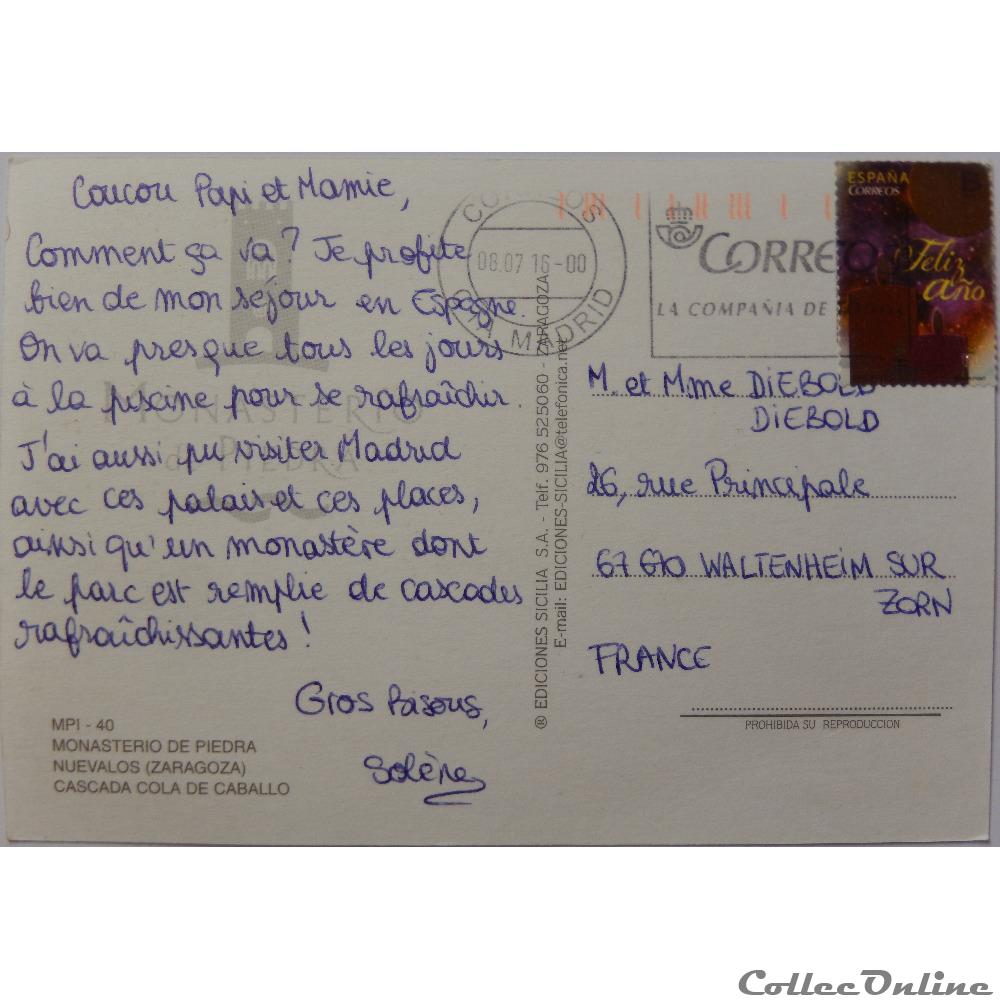 Coucou Papi et Mamie,
Comment ça va? Je profite
bien de mon sejour en Espagne.
On va presque tous les jours
à la piscine pour se rafraîchir.
J'ai aussi pu visiter Madrid
avec ces palais et ces places,
ainsi qu'un monastère dont
le parc est remplie de cascades
rafraîchissantes !
Gros Bisous,
Solène
MPI - 40
MONASTERIO DE PIEDRA
NUEVALOS (ZARAGOZA)
CASCADA COLA DE CABALLO
MONASTERIO
de PIEDRA
® EDICIONES SICILIA S.A. - Telf. 976 525060 - ZARAGOZA
E-mail: EDICIONES-SICILIA@telefonica.net
08.07 16-00
MADRID
CORREO
LA COMPAÑIA DE
ESPAÑA
CORREOS
B
Feliz
año
M. et Mme DIEBOLD
DIEBOLD
26, rue Principale
67 670 WALTENHEIM SUR
ZORN
FRANCE
PROHIBIDA SU REPRODUCCION
CollecOnline